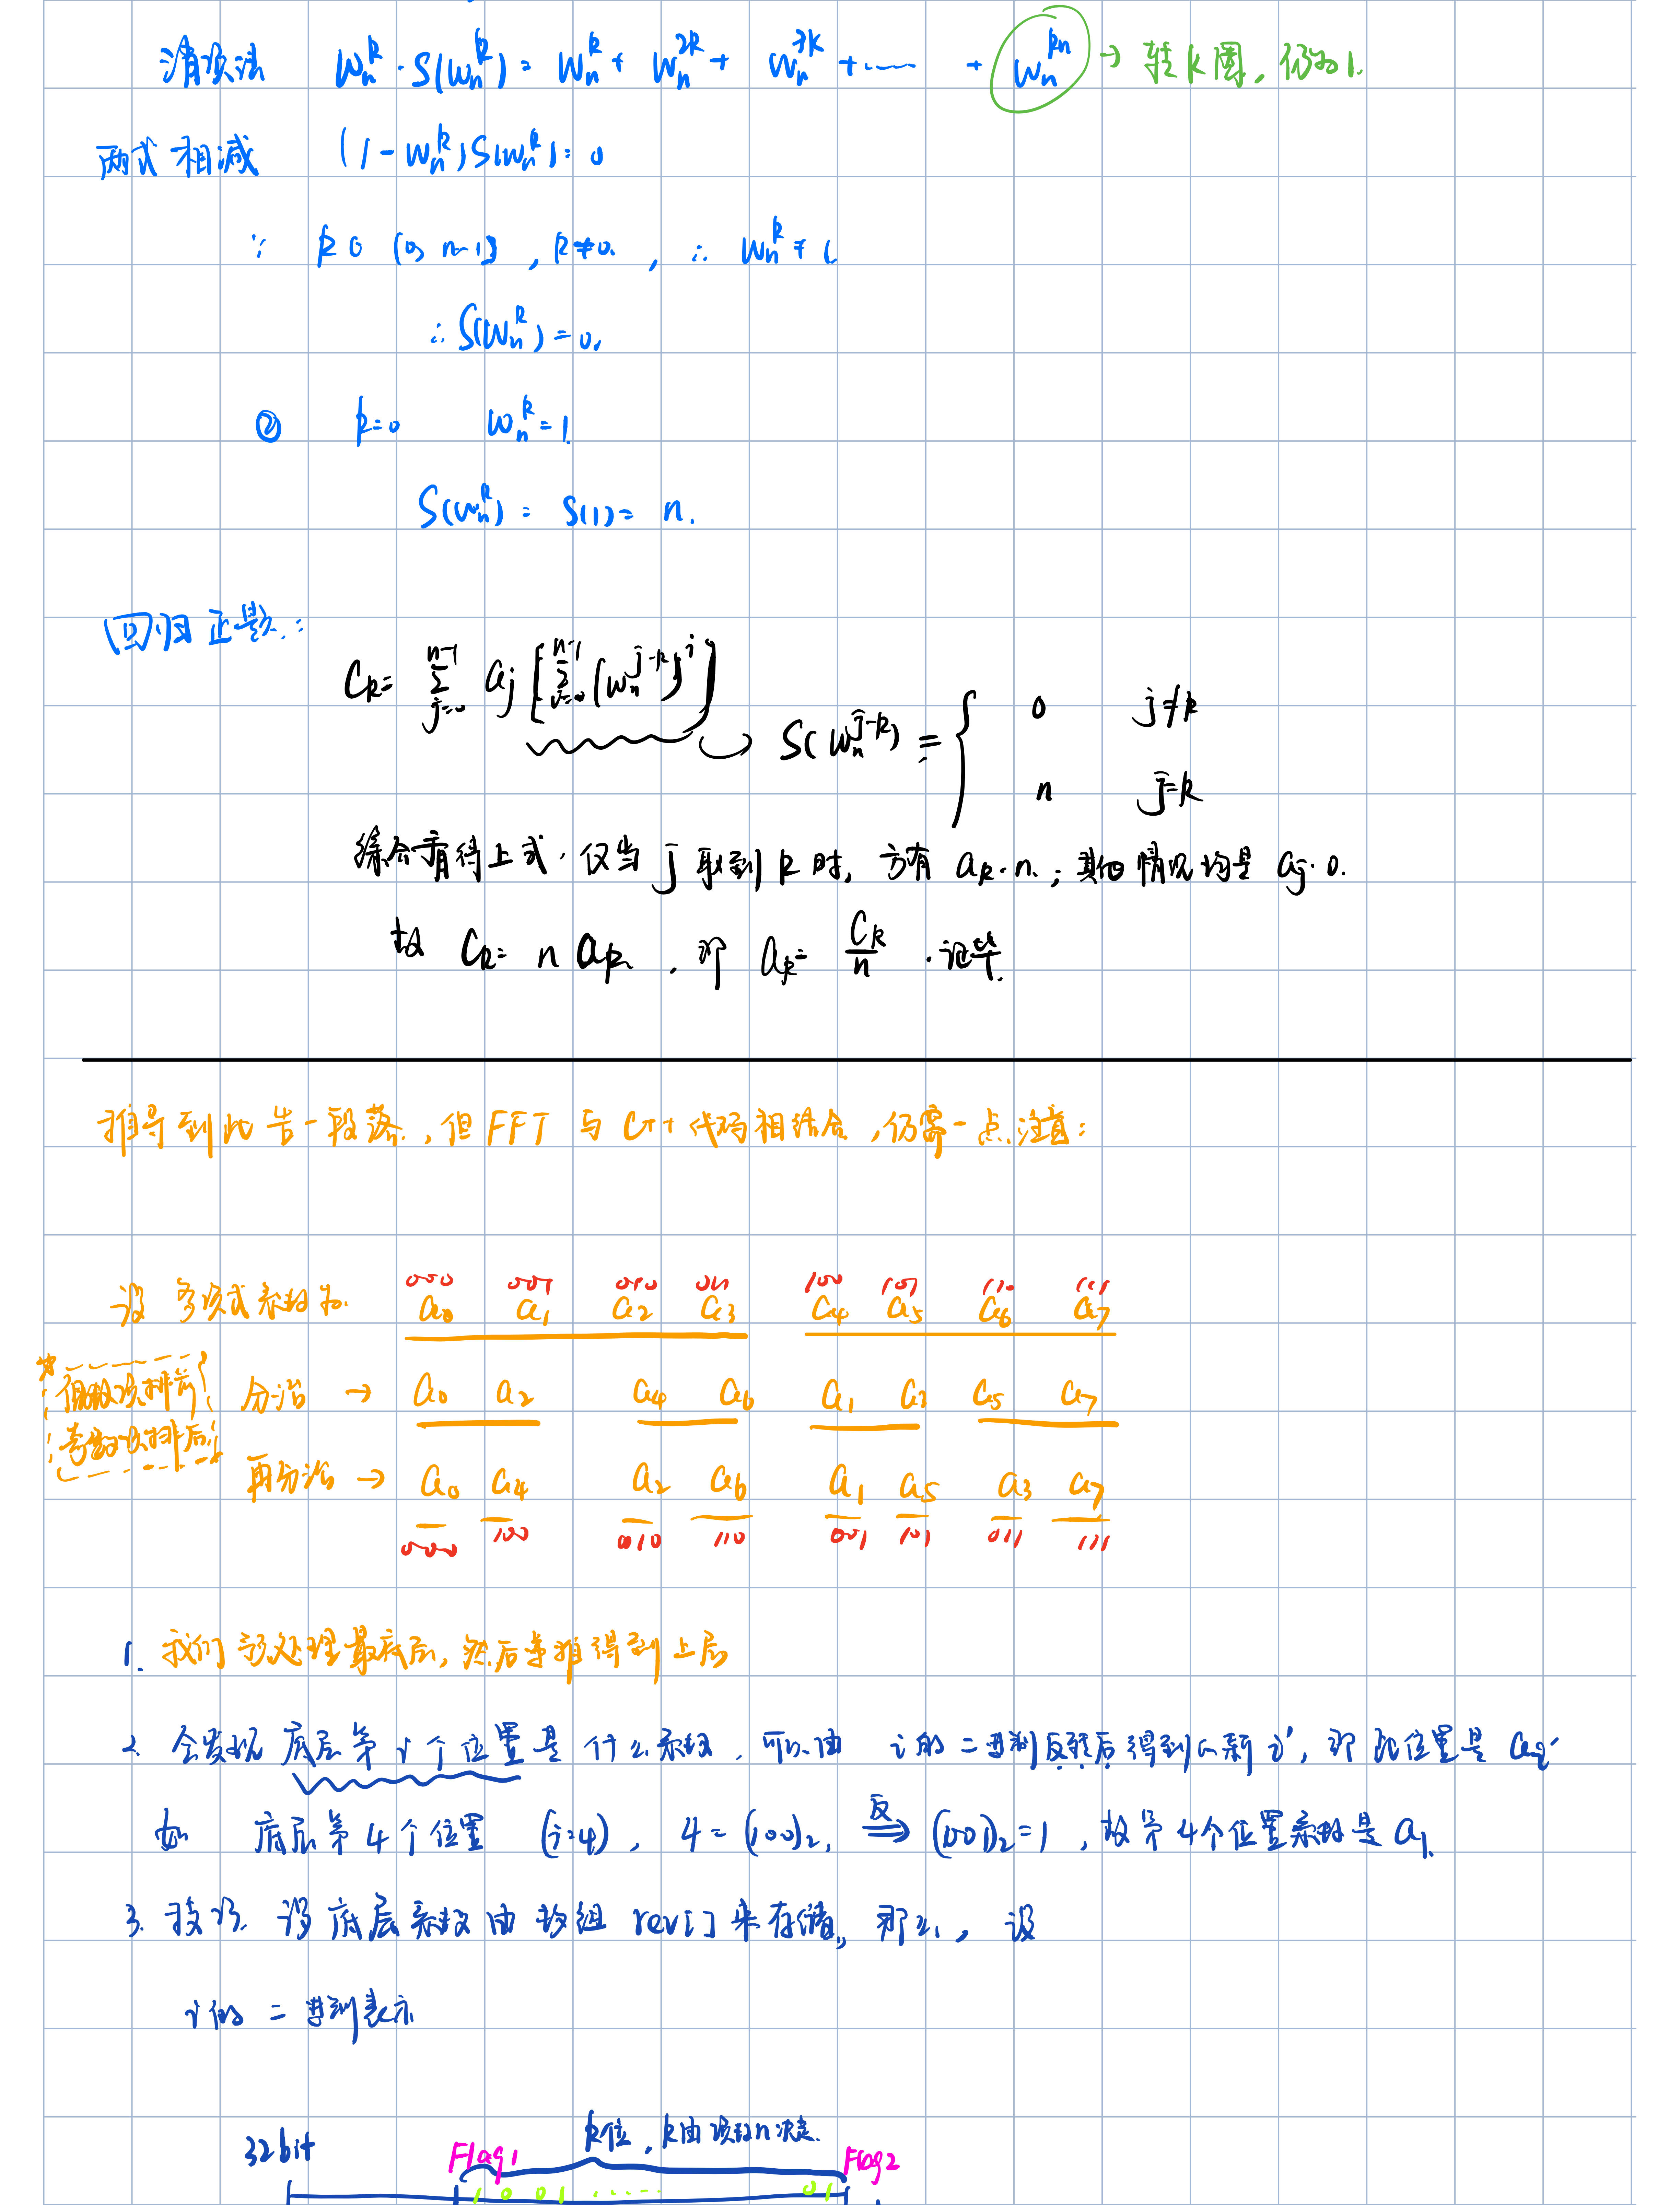 消项法 Wₙᵏ · S(Wₙᵏ) = Wₙᵏ + Wₙ²ᵏ + Wₙ³ᵏ + …… + Wₙᵏⁿ → 转k圈，仍为1.
两式相减 (1-Wₙᵏ)S(Wₙᵏ)=0
∵ k∈(0,n-1], k≠0. , ∴ Wₙᵏ≠1.
∴S(Wₙᵏ)=0.
② k=0 Wₙᵏ=1.
S(Wₙᵏ) = S(1) = n.
回归正题：
Cₖ= Σ_{j=0}^{n-1} aⱼ [Σ_{i=0}^{n-1} (Wₙ^{j-k})^i] S(Wₙ^{j-k}) = { 0 j≠k
n j=k
综合看待上式，仅当 j 取到 k 时，方有 aₖ·n.；其他情况均是 aⱼ·0.
故 Cₖ= n aₖ ，即 aₖ= Cₖ/n .证毕.
推导到此告一段落，但FFT 与 C++代码相结合，仍需一点注意：
000 001 010 011 100 101 110 111
设 多项式系数为. a₀ a₁ a₂ a₃ a₄ a₅ a₆ a₇
偶数项排前 分治 → a₀ a₂ a₄ a₆ a₁ a₃ a₅ a₇
奇数项排后 再分治 → a₀ a₄ a₂ a₆ a₁ a₅ a₃ a₇
000 100 010 110 001 101 011 111
1. 我们 预处理 最底层，然后类推得到上层
2. 会发现 底层第 i 个位置是 什么系数，可以由 i的二进制反转后得到的新 i'，即 此位置是 aᵢ'
如 底层第4个位置 (i=4)，4=(100)₂，反⇒(001)₂=1，故第4个位置系数是a₁.
3. 技巧. 设 底层系数由数组 rev[]来存储，那么，设
i的 二进制表示
32bit k位，k由项数n决定.
Flag1 Flag2
1 0 0 1 ······ 0 1